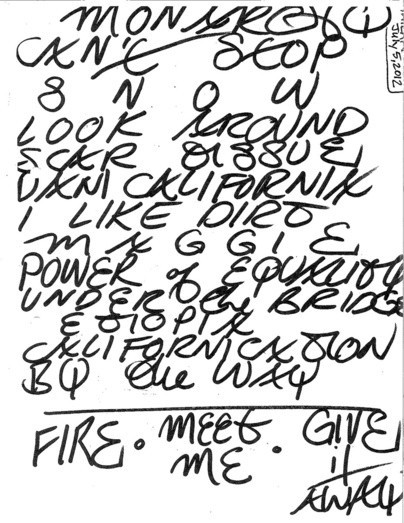 MONARCHY
CAN'T STOP
S N O W
LOOK AROUND
SCAR TISSUE
DANI CALIFORNIA
I LIKE DIRT
M A G G I E
POWER of EQUALITY
UNDER the BRIDGE
ETIOPIA
CALIFORNICATION
BY the WAY
FIRE. MEET ME. GIVE it AWAY
July 5, 2012